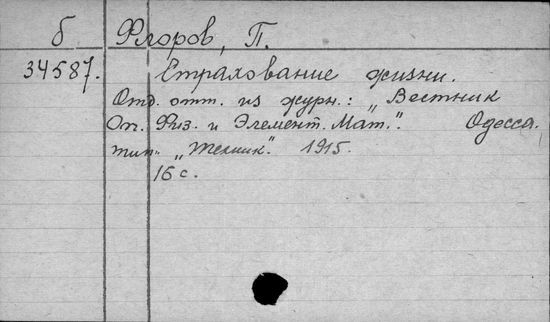 б Флоров, П.
34587. Страхование жизни.
Отд. отт. из журн.: „Вестник
Оп. Физ. и Элемент. Мат.". Одесса.
тип. „Техник". 1915.
16 с.